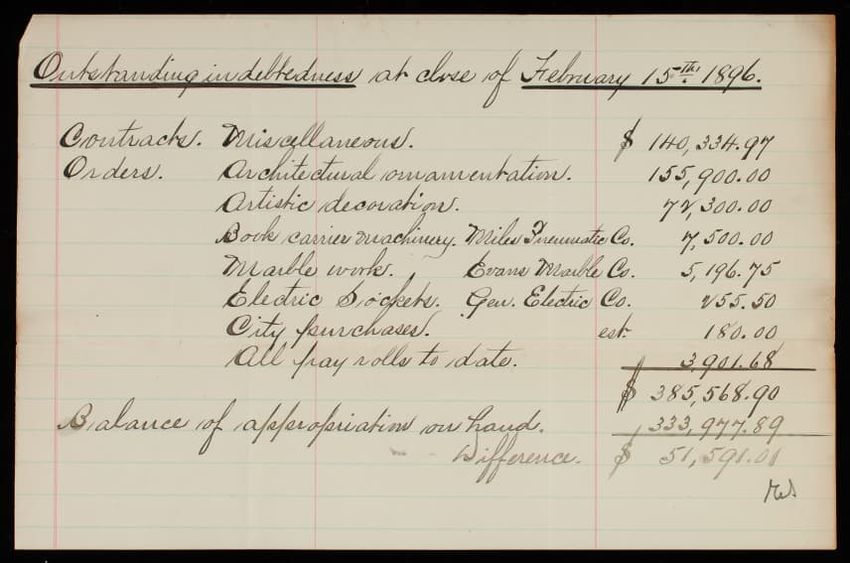 Outstanding indebtedness at close of February 15th 1896.
Contracts. Miscellaneous. $ 140,334.97
Orders. Architectural ornamentation. 155,900.00
Artistic decoration. 72,300.00
Book carrier machinery. Miles Pneumatic Co. 7,500.00
Marble work. Evans Marble Co. 5,196.75
Electric Sockets. Gen. Electric Co. 255.50
City purchases. est. 180.00
All pay rolls to date. 3,901.68
$ 385,568.90
Balance of appropriation on hand. 333,977.89
Difference. $ 51,591.01